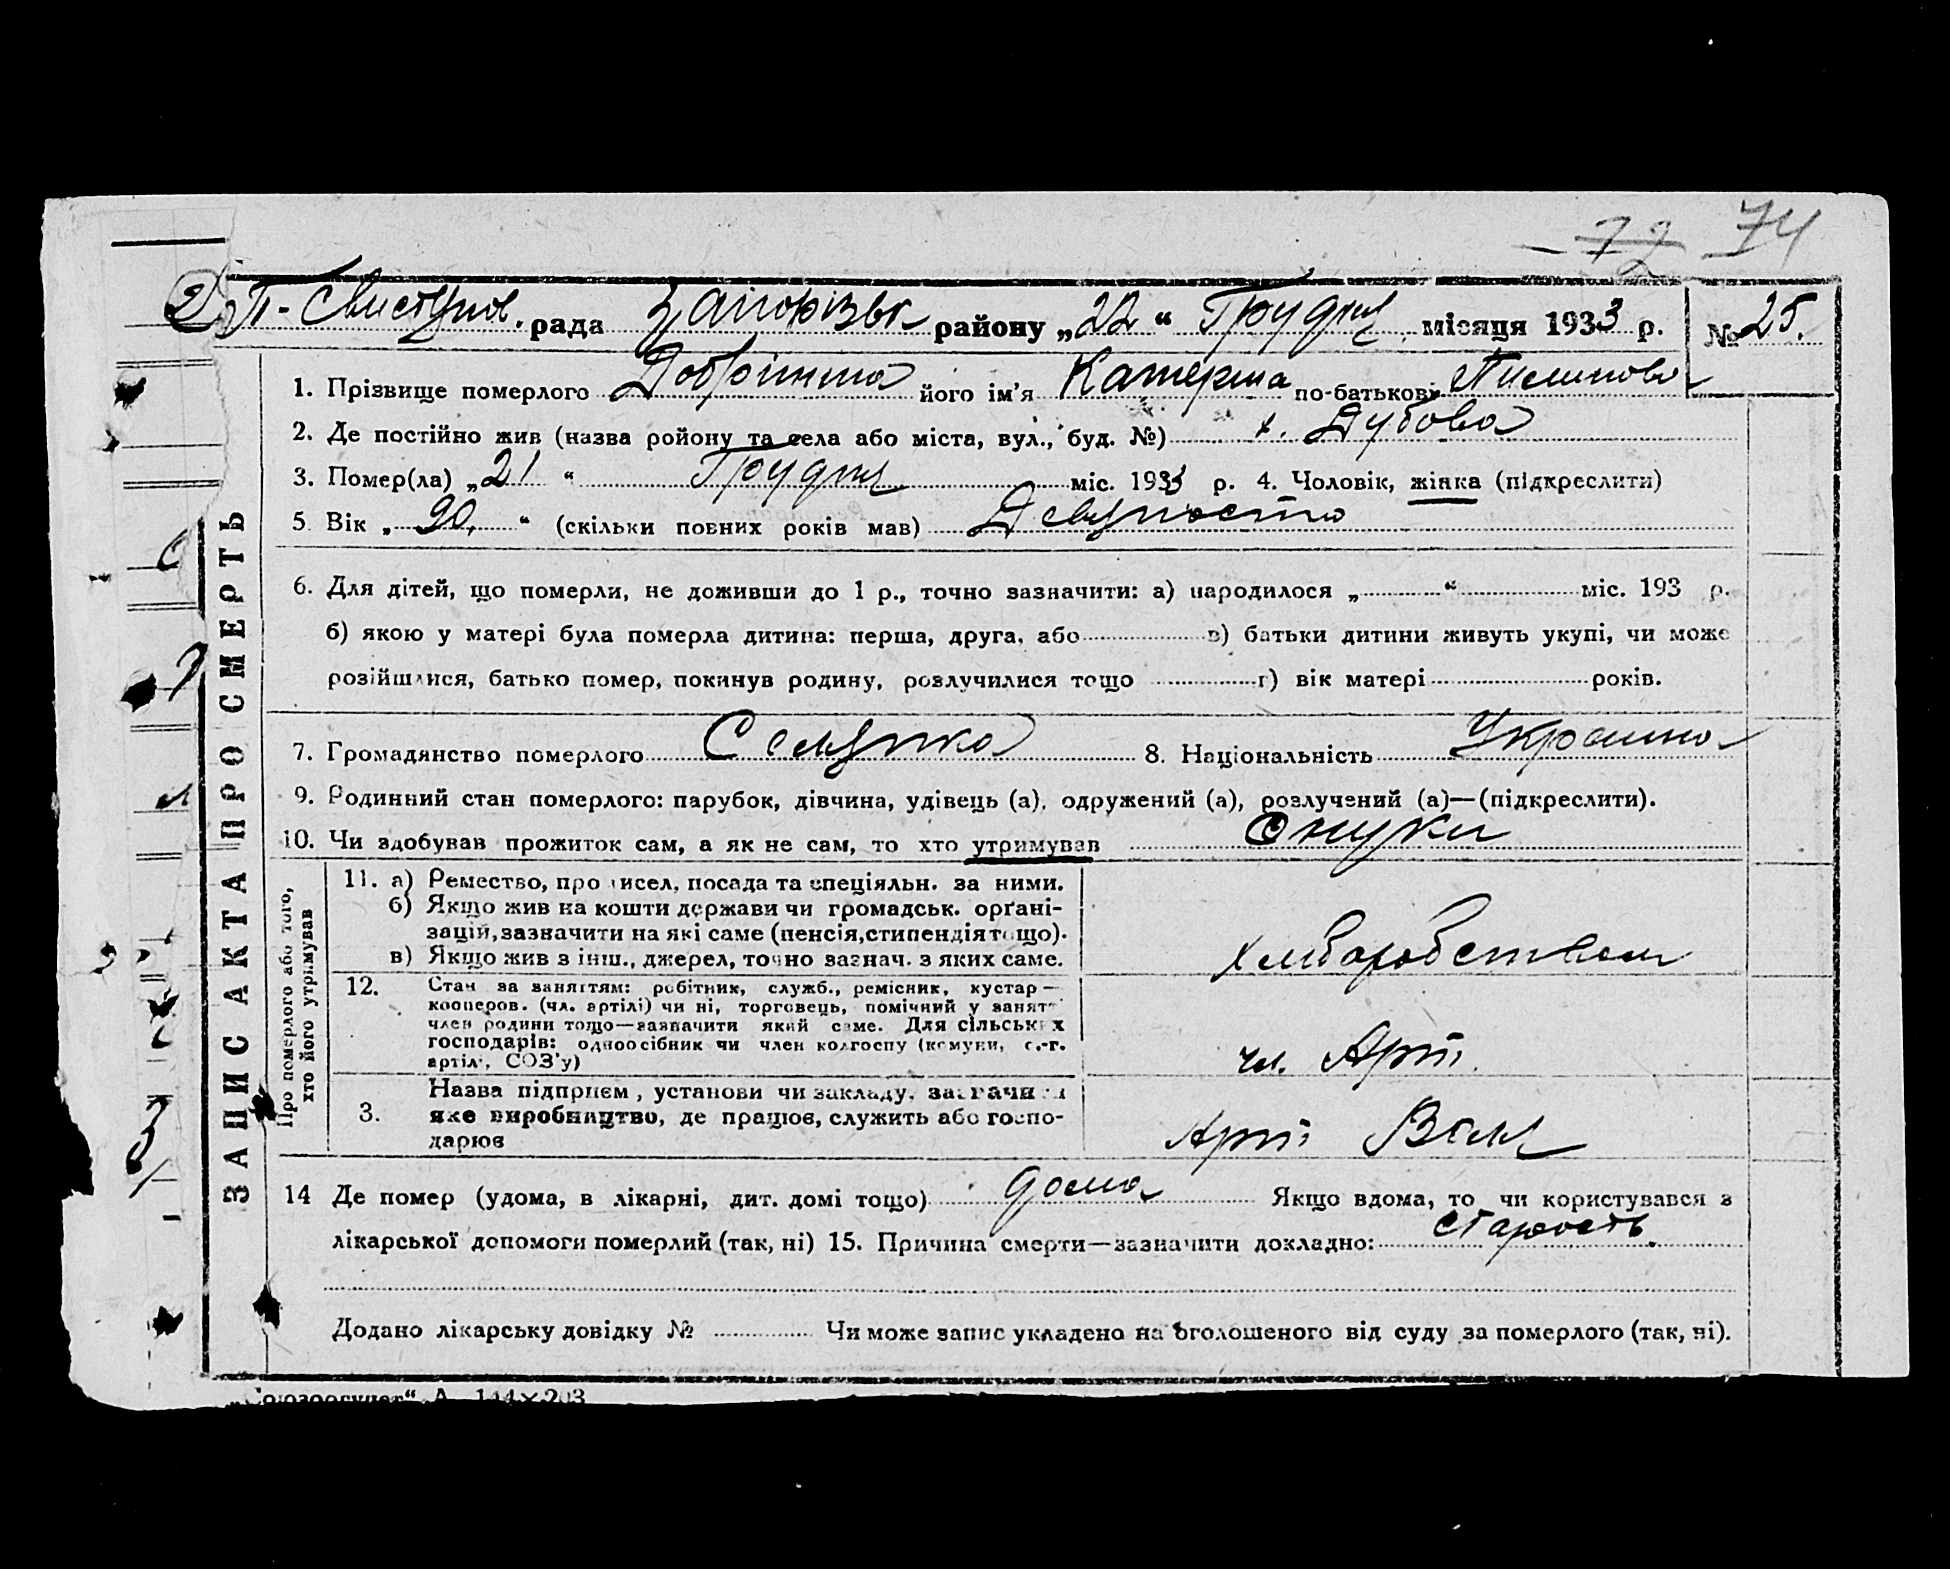 72 74
2) П-Свистунов. рада Запорізьк району „22“ Грудня місяця 1933 р. № 25.
1. Прізвище померлого Добриніна його ім'я Катерина по-батькові
2. Де постійно жив (назва ройону та села або міста, вул., буд. №) х. Дубова
3. Помер(ла) „21“ Грудня міс. 1933 р. 4. Чоловік, жінка (підкреслити)
5 Вік „90.“ (скільки повних років мав) Девяносто
6. Для дітей, що померли, не доживши до 1 р., точно зазначити: а) народилося „ “ міс. 193 р.
б) якою у матері була померла дитина: перша, друга, або в) батьки дитини живуть укупі, чи може
розійшлися, батько помер, покинув родину, розлучилися тощо г) вік матері років.
7. Громадянство померлого Селянка 8. Національність Україинка
9. Родинний стан померлого: парубок, дівчина, удівець (а), одружений (а), розлучений (а)—(підкреслити).
10. Чи здобував прожиток сам, а як не сам, то хто утримував Онуки
ЗАПИС АКТА ПРО СМЕРТЬ
Про померлого або того,
хто його утримував
11. а) Ремество, промисел, посада та спеціяльн. за ними.
б) Якщо жив на кошти держави чи громадськ. орґані-
зацій, зазначити на які саме (пенсія, стипендія тощо).
в) Якщо жив з інш., джерел, точно вазнач. з яких саме.
Хлиборобством
12. Стан за заняттям: робітник, служб., ремісник, кустар—
кооперов. (чл. артілі) чи ні, торговець, помічний у занятт
член родини тощо—зазначити який саме. Для сільських
господарів: одноосібник чи член колгоспу (комуни, с.-г.
артілі, СОЗ'у)
чл. Арті.
3. Назва підприєм, установи чи закладу, зазначи и
яке виробництво, де працює, служить або госпо-
дарює
Арті
14 Де помер (удома, в лікарні, дит. домі тощо) дома Якщо вдома, то чи користувався з
лікарської допомоги померлий (так, ні) 15. Причина смерти—зазначити докладно: старость.
Додано лікарську довідку № Чи може запис укладено на оголошеного від суду за померлого (так, ні).
„Союзоргучет“ А 144×203